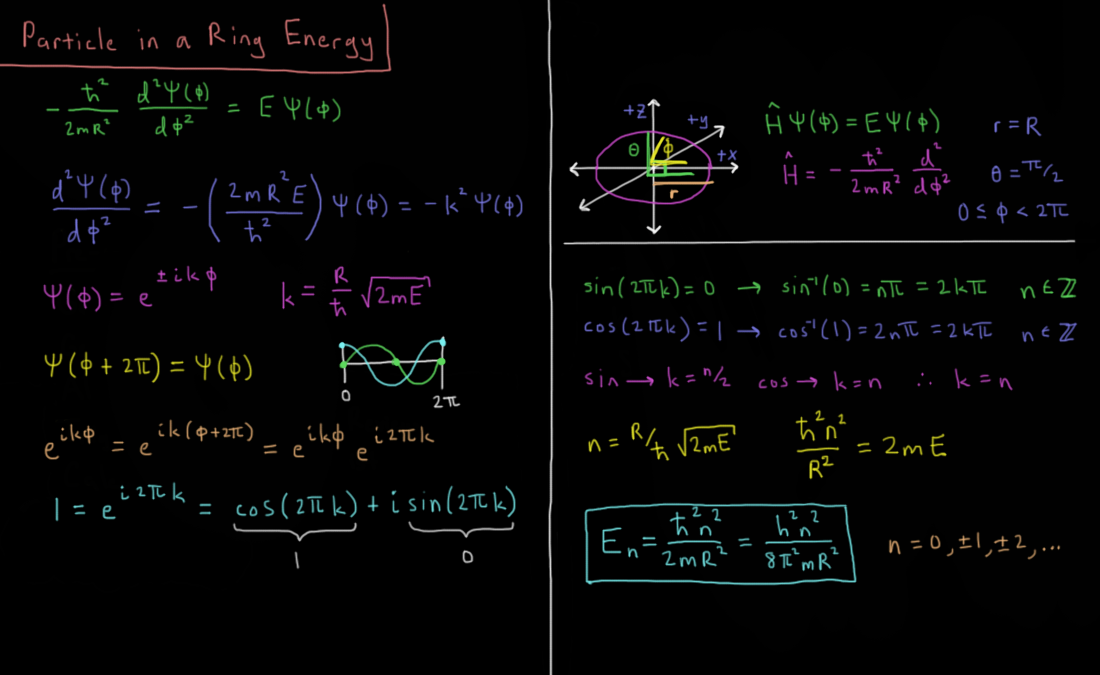 Particle in a Ring Energy
-ħ²/2mR² d²Ψ(φ)/dφ² = E Ψ(φ)
d²Ψ(φ)/dφ² = -(2mR²E/ħ²) Ψ(φ) = -k²Ψ(φ)
Ψ(φ) = e^(±ikφ) k = R/ħ √2mE
Ψ(φ + 2π) = Ψ(φ)
0 2π
e^(ikφ) = e^(ik(φ+2π)) = e^(ikφ) e^(i2πk)
1 = e^(i2πk) = cos(2πk) + i sin(2πk)
1 0
+z +y +x θ φ r
ĤΨ(φ) = EΨ(φ) r = R
Ĥ = -ħ²/2mR² d²/dφ² θ = π/2
0 ≤ φ < 2π
sin(2πk) = 0 → sin⁻¹(0) = nπ = 2kπ n ∈ ℤ
cos(2πk) = 1 → cos⁻¹(1) = 2nπ = 2kπ n ∈ ℤ
sin → k = n/2 cos → k = n ∴ k = n
n = R/ħ √2mE ħ²n²/R² = 2mE
Eₙ = ħ²n²/2mR² = h²n²/8π²mR² n = 0, ±1, ±2, ...